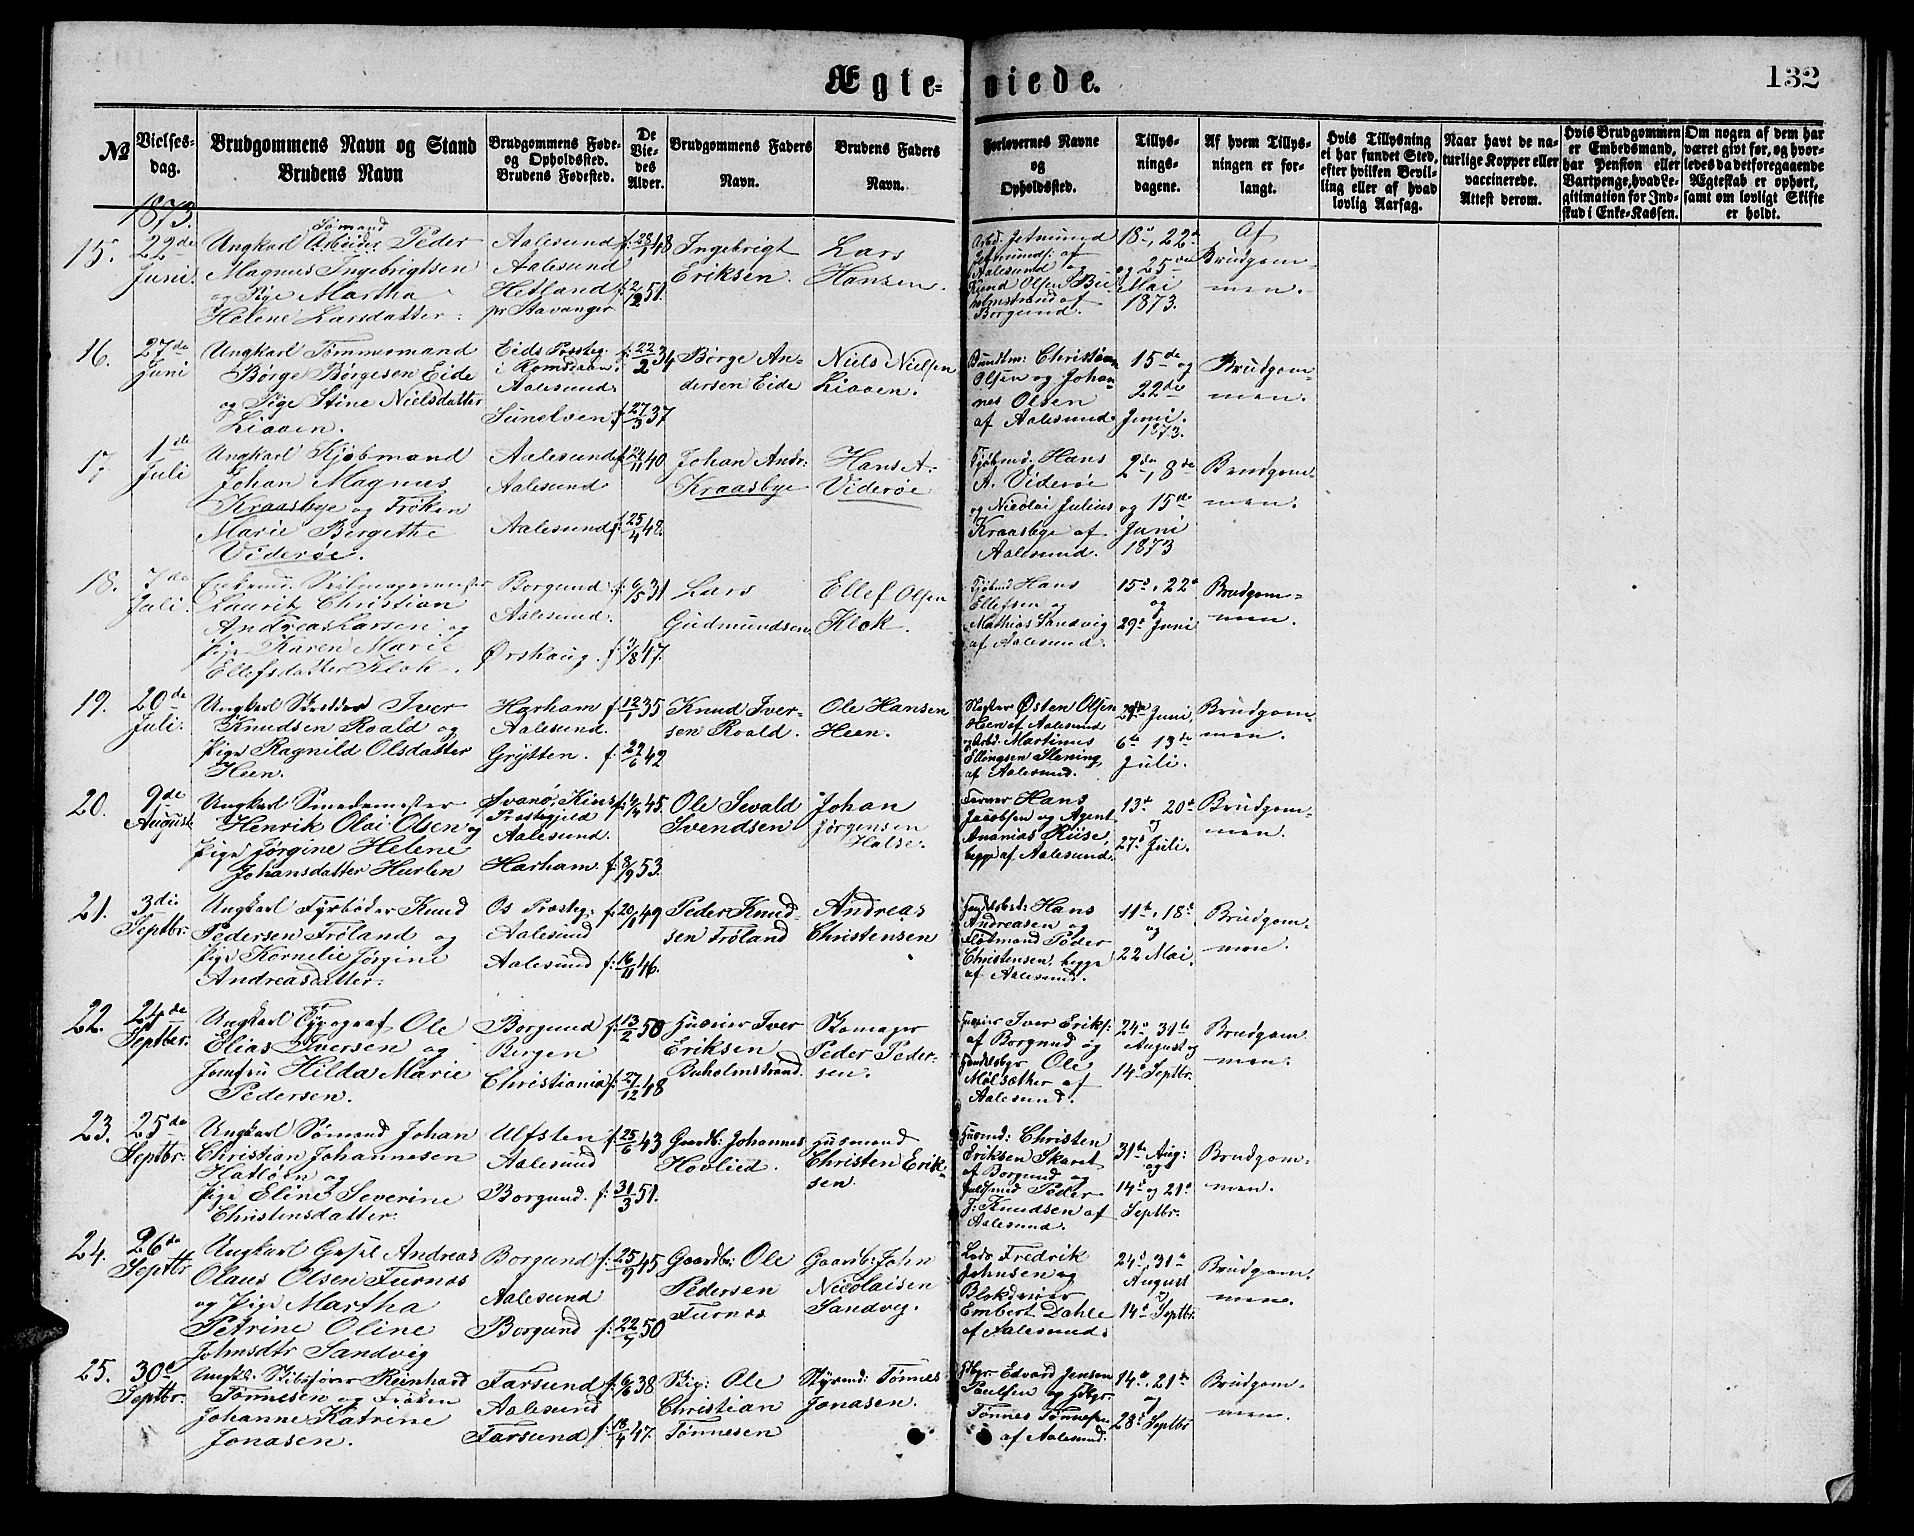 Ægte- viede.
132
No
Vielses-
dag.
Brudgommens Navn og Stand
Brudens Navn
Brudgommens Føde-
og Opholdssted.
Brudens Fødested.
De
Vie-
des
Alder.
Brudgommens Faders
Navn.
Brudens Faders
Navn.
Forlovernes Navne
og
Opholdssted.
Tillys-
nings-
dagene.
Af hvem Tillys-
ningen er for-
langt.
Hvis Tillysning
ei har fundet Sted,
efter hvilken Bevil-
ling eller af hvad
lovlig Aarsag.
Naar havt de na-
turlige Kopper eller
vaccinerede.
Attest derom.
Hvis Brudgommen
er Embedsmand,
har Pension eller
Vartpenge, hvad Le-
gitimation for Ind-
skud i Enke-Kassen.
Om nogen af dem har
været givt før, og hvor-
ledes da det foregaaende
Ægteskab er ophørt,
samt om lovligt Skifte
er holdt.
1873.
15.
22de
Juni.
Sømand
Ungkarl Arbeider Peder
Magnus Ingebrigtsen
og Pige Martha
Helene Larsdatter.
Aalesund
Aalesund
Hetland
pr Stavanger
f. 28/1 48
f. 2/12 51.
Ingebrigt
Eriksen.
Lars
Hansen.
Arb: Jetmund
Jetmunds: af
Aalesund og
Knud Olsen Bu-
holmstrand af
Borgund.
18d, 22de
og 25de
Mai
1873.
Af
Brudgom-
men.
16.
27de
Juni
Ungkarl Tømmermand
Børge Børgesen Eide
og Pige Stine Nielsdatter
Liaaen.
Eids Præsteg:
i Romsdalen.
Aalesund.
Sunelven.
f. 22/2 34
f. 27/3 37
Børge An-
dersen Eide
Niels Nielsen
Liaaen.
Christian
Olsen og Johan-
nes Olsen
af Aalesund.
15de og
22de
Juni.
1873.
Brudgom-
men.
17.
1de
Juli
Ungkarl Kjøbmand
Johan Magnus
Kraasbye og Frøken
Marie Bergethe
Viderøe.
Aalesund
Aalesund
Aalesund
f. 24/11 40
f. 25/4 48.
Johan Andr:
Kraasbye
Hans A.
Viderøe
Kjøbmd. Hans
A. Viderøe
og Nicolai Julius
Kraasbye af
Aalesund.
2de, 8de
og 15de
Juni
1873
Brudgom-
men.
18.
7de
Juli.
Enkemd.
Laurits Christian
Andreas Larsen og
Pige Karen Marie
Ellefsdatter Klok.
Borgund
Aalesund.
Ørskoug.
f. 6/5 31
f. 3/8 47.
Lars
Gudmundsen
Ellef Olsen
Klok.
Kjøbmd Hans
Ellefsen og
Mathias Sandvig
af Aalesund.
15d, 22d
og
29d Juni
Brudgom-
men.
19.
20de
Juli.
Ungkarl Skrædder Iver
Knudsen Roald og
Pige Ragnild Olsdatter
Heen.
Harham
Aalesund.
Grytten.
f. 12/1 35
f. 29/6 42
Knud Iver-
sen Roald.
Ole Hansen
Heen.
Østen Olsen
Heen af Aalesund
og Arbd. Martinus
Ellingsen Slening,
af Aalesund.
29de Juni,
6te 13de
Juli.
Brudgom-
men.
20.
9de
August
Ungkarl Smedemester
Henrik Olai Olsen og
Pige Jørgine Helene
Johansdatter Hurlen
Svanø, Kins
Præstegjeld
Aalesund.
Harham.
45.
f. 8/9 53.
Ole Sevald
Svendsen
Johan
Jørgensen
Halse.
Farver Hans
Jacobsen og Agent
Ananias Riise,
begge af Aalesund.
13d 20d
og
27d Juli.
Brudgom-
men.
21.
3die
Septbr.
Ungkarl Fyrbøder Knud
Pedersen Frøland og
Pige Kornelie Jørgine
Andreasdatter.
Os Præsteg:
Aalesund
Aalesund
49
f. 16/11 46.
Peder Knud-
sen Frøland
Andreas
Christensen
Handelsbet: Hans
Andreasen og
Flødmand Peder
Christensen, begge
af Aalesund.
11d, 18d
og
22 Mai.
Brudgom-
men.
22.
24de
Septber.
Ungkarl Typograf Ole
Elias Iversen og
Jomfru Hilda Marie
Pedersen.
Borgund
Bergen
Christiania
f. 13/2 50
f. 27/12 48
Huseier Iver
Eriksen
Buholmstrand.
Skomager
Peder Peder-
sen.
Huseier Iver Eriks:
af Borgund og
Handelsbgr Ole
Molsæther af
Aalesund.
24d, 31te
August og
14d Septbr.
Brudgom-
men.
23.
25de
Septbr.
Ungkarl Sømand Johan
Christian Johannesen
Hatløen og
Pige Eline Severine
Christensdatter.
Ulfsten
Aalesund
Borgund.
f. 25/6 43
f. 31/3 51.
Gaardb: Johannes
Hovlied.
Husmand
Christen Erik-
sen.
Husmd: Christen
Eriksen Skaret
af Borgund og
Peder
J. Knudsen af
Aalesund.
31te Aug:
og
14d og 21d
Septbr.
Brudgom-
men.
24.
26de
Septbr.
Ungkarl Gesel Andreas
Olaus Olsen Furnæs
og Pige Martha
Petrine Oline
Johnsdtr Sandvig
Borgund
Aalesund
Borgund
f. 25/9 45
f. 22/7 50
Gaardb: Ole
Pedersen
Furnæs
Gaardb: John
Nicolaisen
Sandvig.
Lods Fredrik
Johnsen og
Blokdreier
Embert Dahle
af Aalesund.
24d, 31te
August
og
14d Septbr.
Brudgom-
men.
25.
30d
Septbr.
Ungkl. Skibsfører Reinhard
Tønnesen og Frøken
Johanne Katrine
Jonasen.
Farsund
Aalesund
Farsund
f. 6/6 38
f. 18/4 47.
Skip: Ole
Christian
Tønnesen
Styrmd: Tønnes
Jonasen.
Hdbgr Edvard Jensen
Paulsen og Hdbgr.
Tønnes Tønnesen
af Aalesund.
14d, 21de
og
28d Septbr
Brudgom-
men.